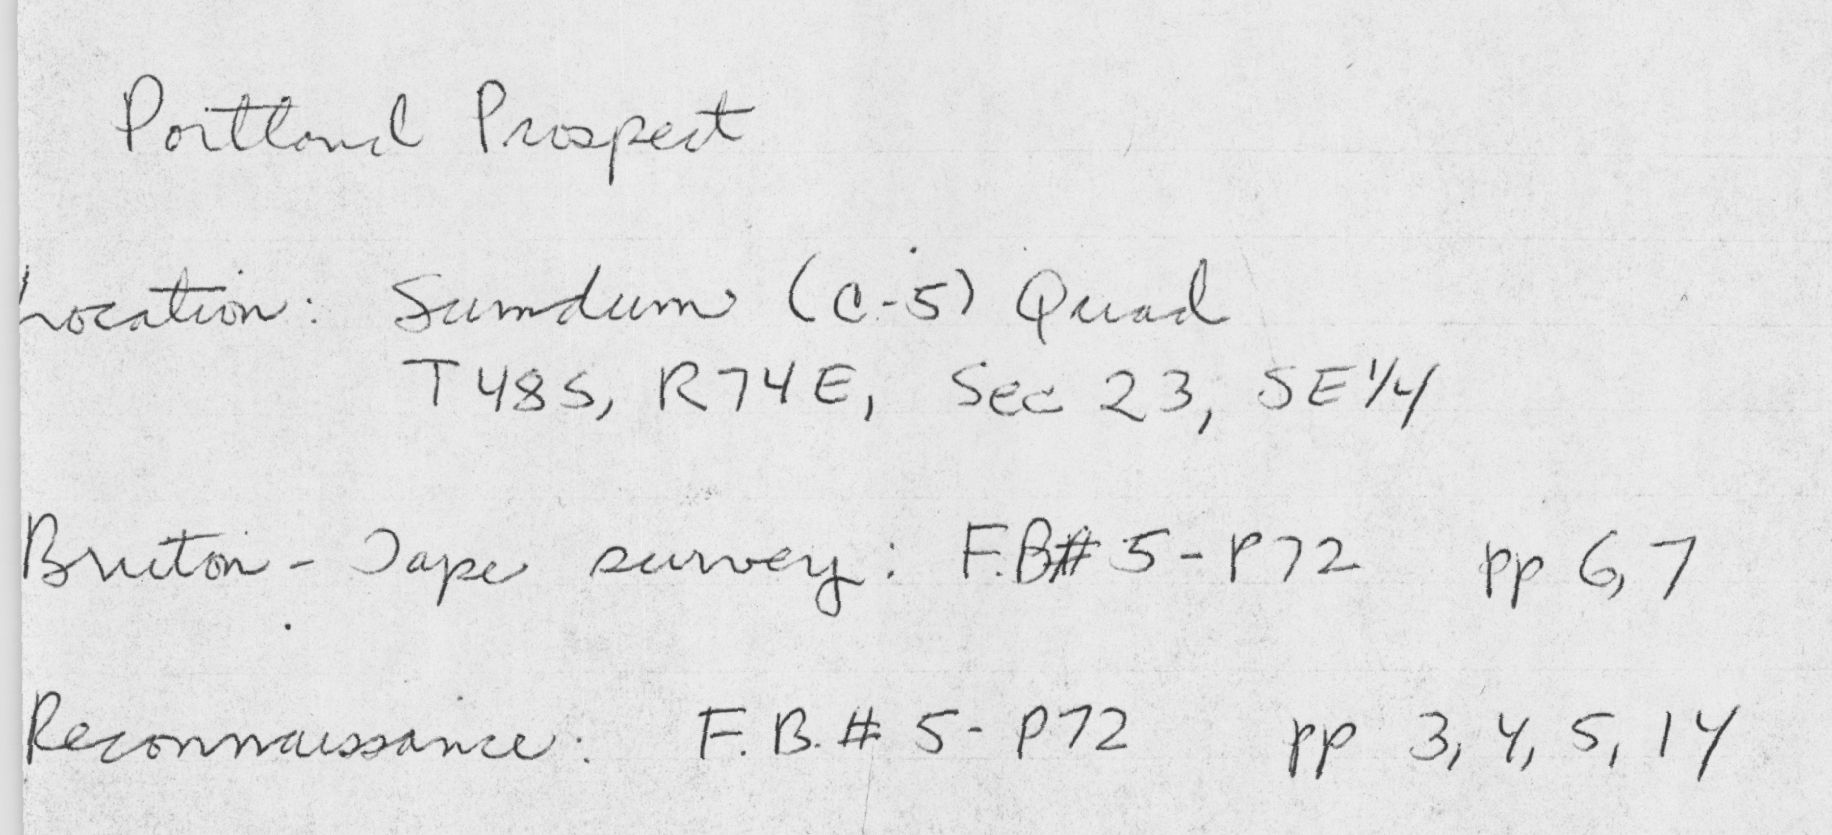 Portland Prospect
Location: Sumdum (C-5) Quad
T48S, R74E, Sec 23, SE 1/4
Bruton - Tape survey: F.B# 5-P72 pp 6,7
Reconnaissance: F.B.# 5-P72 pp 3, 4, 5, 14